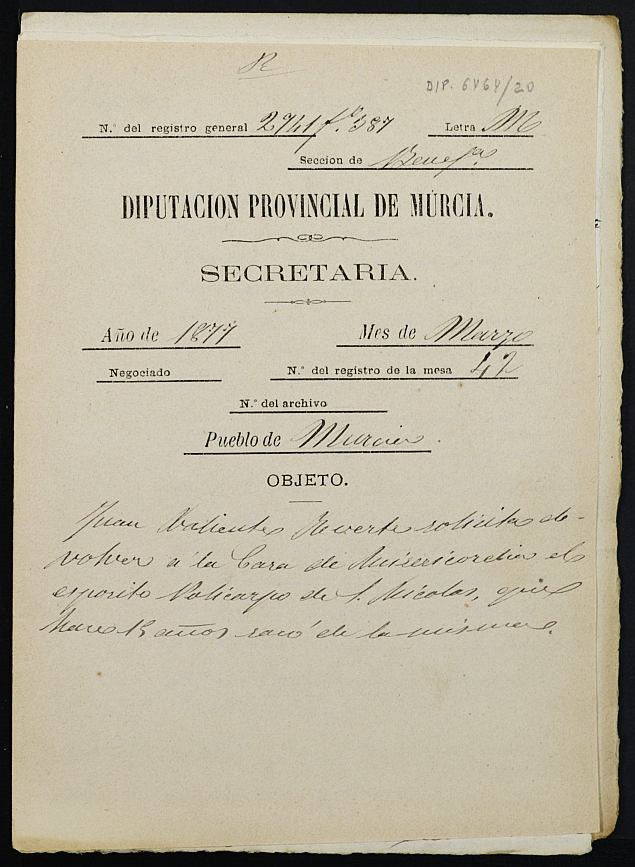 R
DIP. 6464/20
N.º del registro general 2741 fº 387 Letra M
Seccion de Benefª
DIPUTACION PROVINCIAL DE MURCIA.
SECRETARIA.
Año de 1877 Mes de Marzo
Negociado N.º del registro de la mesa 42
N.º del archivo
Pueblo de Murcia.
OBJETO.
Juan Valiente Reverte solicita de-
volver á la Casa de Misericordia el
esposito Policarpo de S. Nicolas, que
hace 13 años sacó de la misma.